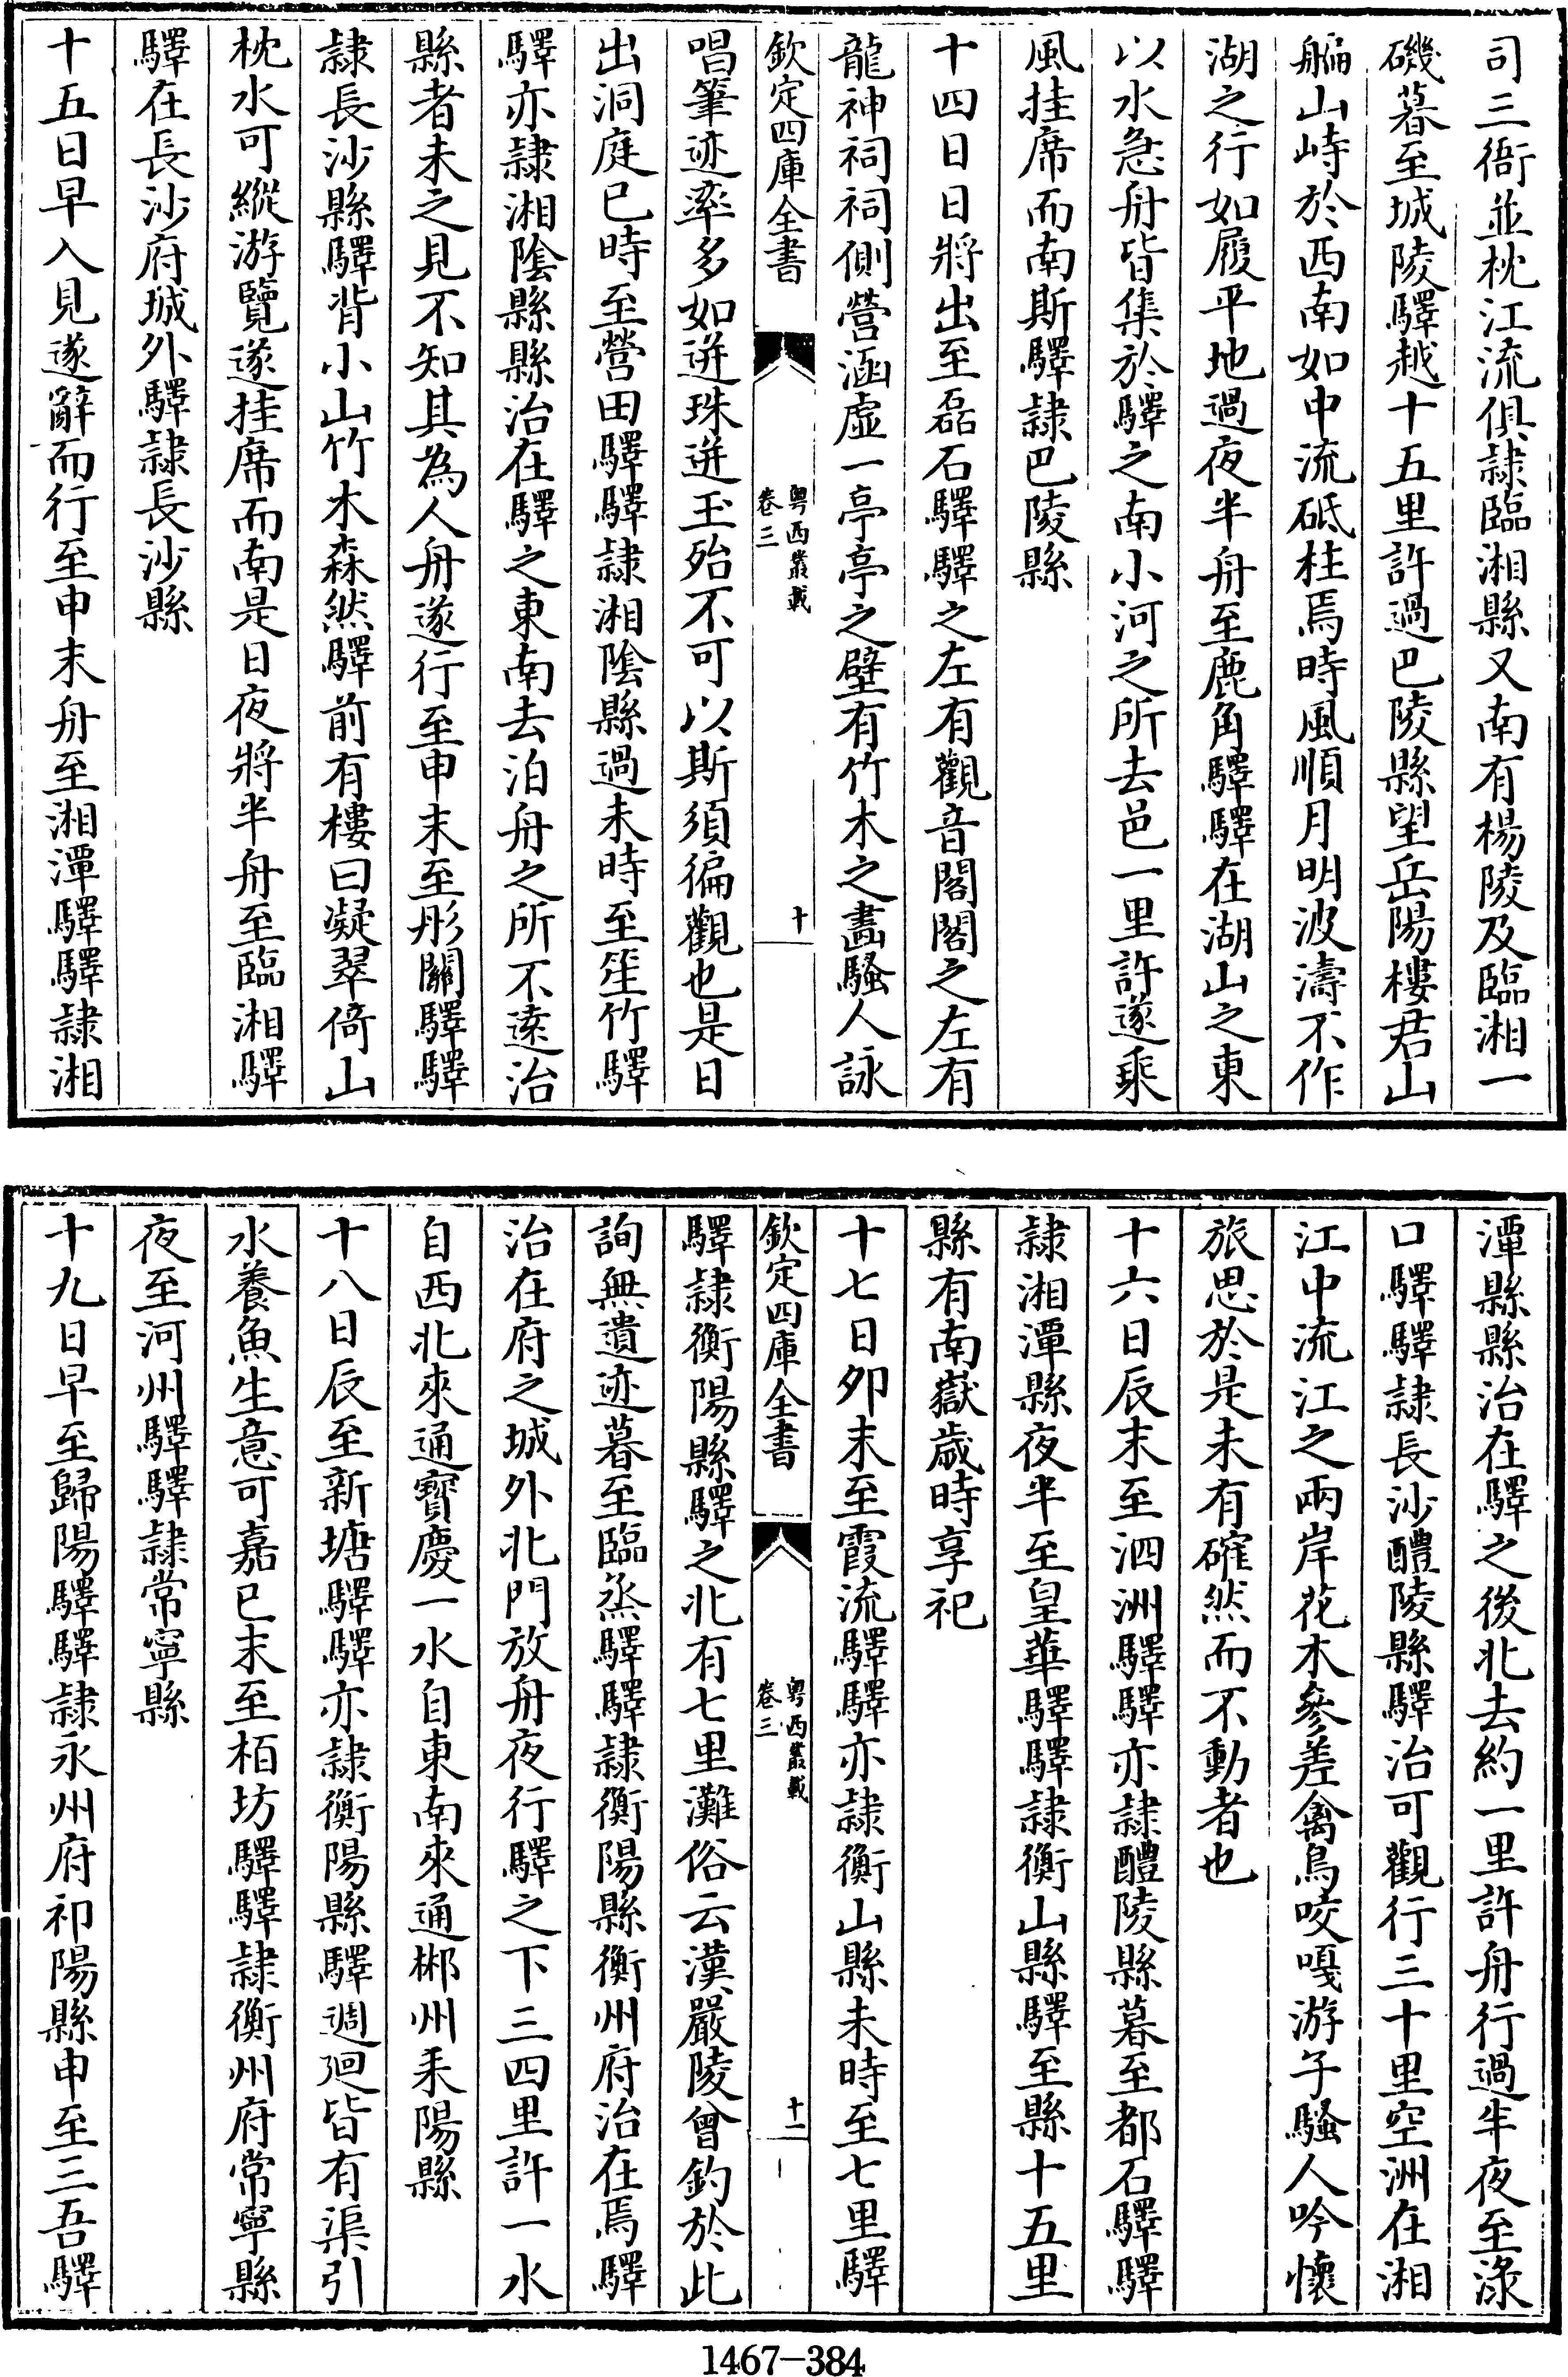 司三衙並枕江流俱隷臨湘縣又南有楊陵及臨湘一
磯暮至城陵驛越十五里許過巴陵縣望岳陽樓君山
艑山峙於西南如中流砥柱焉時風順月明波濤不作
湖之行如履平地過夜半舟至鹿角驛驛在湖山之東
以水急舟皆集於驛之南小河之所去邑一里許遂乘
風挂席而南斯驛隷巴陵縣
十四日日將出至磊石驛驛之左有觀音閣閣之左有
龍神祠祠側營涵虛一亭亭之壁有竹木之畫騷人詠
欽定四庫全書
粤西叢載
卷三
十
唱筆迹率多如迸珠迸玉殆不可以斯須徧觀也是日
出洞庭巳時至營田驛驛隷湘陰縣過未時至笙竹驛
驛亦隷湘陰縣縣治在驛之東南去泊舟之所不遠治
縣者未之見不知其為人舟遂行至申末至彤關驛驛
隷長沙縣驛背小山竹木森然驛前有樓曰凝翠倚山
枕水可縱游覽遂挂席而南是日夜將半舟至臨湘驛
驛在長沙府城外驛隷長沙縣
十五日早入見遂辭而行至申末舟至湘潭驛驛隷湘
潭縣縣治在驛之後北去約一里許舟行過半夜至淥
口驛驛隷長沙醴陵縣驛治可觀行三十里空洲在湘
江中流江之兩岸花木參差禽鳥咬嘎游子騷人吟懷
旅思於是未有確然而不動者也
十六日辰末至泗洲驛驛亦隷醴陵縣暮至都石驛驛
隷湘潭縣夜半至皇華驛驛隷衡山縣驛至縣十五里
縣有南嶽歲時享祀
十七日夘末至霞流驛驛亦隷衡山縣未時至七里驛
欽定四庫全書
粤西叢載
卷三
十一
驛隷衡陽縣驛之北有七里灘俗云漢嚴陵曾釣於此
詢無遺迹暮至臨烝驛驛隷衡陽縣衡州府治在焉驛
治在府之城外北門放舟夜行驛之下三四里許一水
自西北來通寶慶一水自東南來通郴州耒陽縣
十八日辰至新塘驛驛亦隷衡陽縣驛週廻皆有渠引
水養魚生意可嘉巳末至栢坊驛驛隷衡州府常寧縣
夜至河州驛驛隷常寧縣
十九日早至歸陽驛驛隷永州府祁陽縣申至三吾驛
1467-384